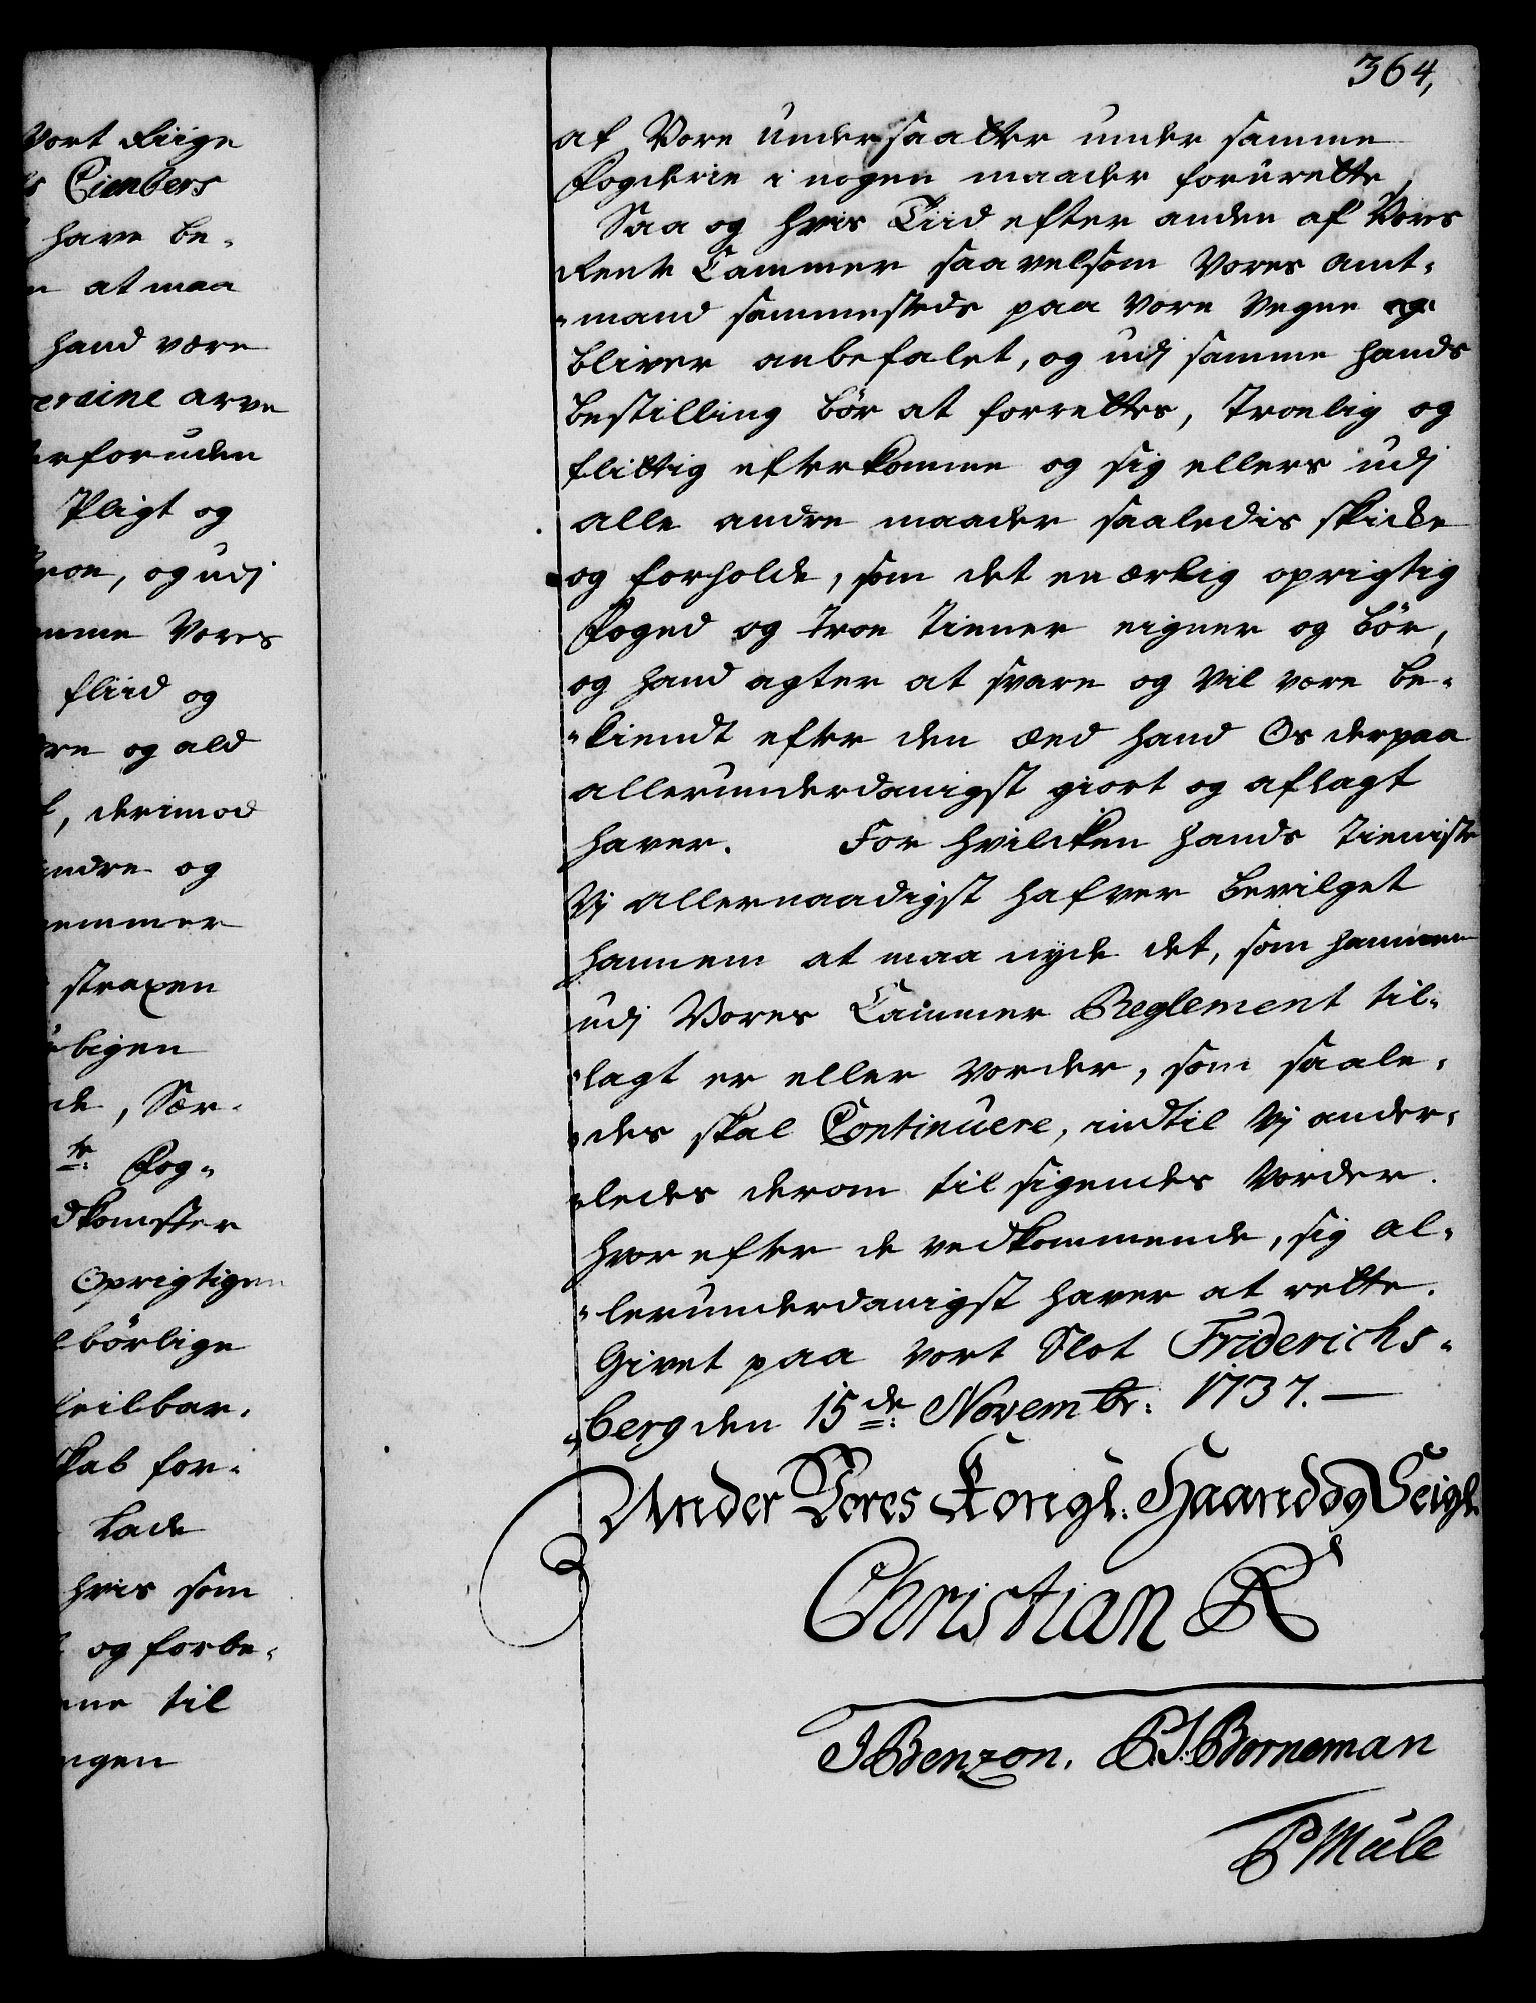 Vort Riige
Cimbers
have be-
at maa
hand være
arve
foruden
Pligt og
troe, og udj
Vores
fliid og
og ald
, derimod
andre og
straxen
, Sær-
Fog-
Oprigtigen
børlige
feilbar.
for-
Lade
hvis som
og forbe-
til
364,
af Vore undersaatter under samme
Fogderie i nogen maader forurette,
Saa og hvis Tiid efter anden af Vores
Rente Cammer saavelsom Vores Amt-
-mand sammesteds paa Vore Vegne og
bliver anbefalet, og udj samme hands
bestilling bör at forrettes, Troelig og
flittig efterkomme og sig ellers udj
alle andre maader saaledis skicke
og forholde, som det en ærlig oprigtig
Foged og troe Tiener eigner og bör,
og hand agter at svare og vil være be-
-kiendt efter den Æed hand Os derpaa
allerunderdanigst giort og aflagt
haver. For hvilcken hands Tieniste
Vj allernaadigst hafver bevilget
hannem at maa nyde det, som hannem
udj Vores Cammer Reglement til-
-lagt er eller vorder, som saale-
-des skal Continuere, indtil Vj ander-
-ledes derom tilsigendes vorder.
hvor efter de vedkommende, sig al-
-lerunderdanigst haver at rette.
Givet paa vort Slot Friderichs-
-berg den 15de Novembr: 1737.
Under Vores Kongl: Haand og Seigl.
Christian R
J Benzon. P.J. Borneman
P Mule